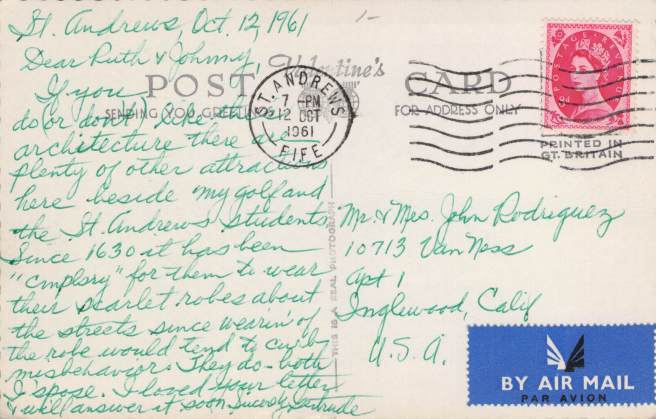 St. Andrews, Oct. 12, 1961
Dear Ruth & Johnny,
If you
do or don't like the
architecture there are
plenty of other attractions
here beside my golf and
the St. Andrews students.
Since 1630 it has been
"cmplsry" for them to wear
their scarlet robes about
the streets since wearin' of
the robe would tend to curb
misbehavior. They do - both
I s'pose. I loved your letter
& will answer it soon. Sincerely, Gertrude
Valentine's
POST CARD
SENDING YOU GREETINGS
FOR ADDRESS ONLY
THIS IS A REAL PHOTOGRAPH
ST. ANDREWS
7 - PM
12 OCT
1961
FIFE
POSTAGE REVENUE
PRINTED IN
GT. BRITAIN
Mr. & Mrs. John Rodriguez
10713 Van Ness
Apt 1
Inglewood, Calif
U.S.A.
BY AIR MAIL
PAR AVION